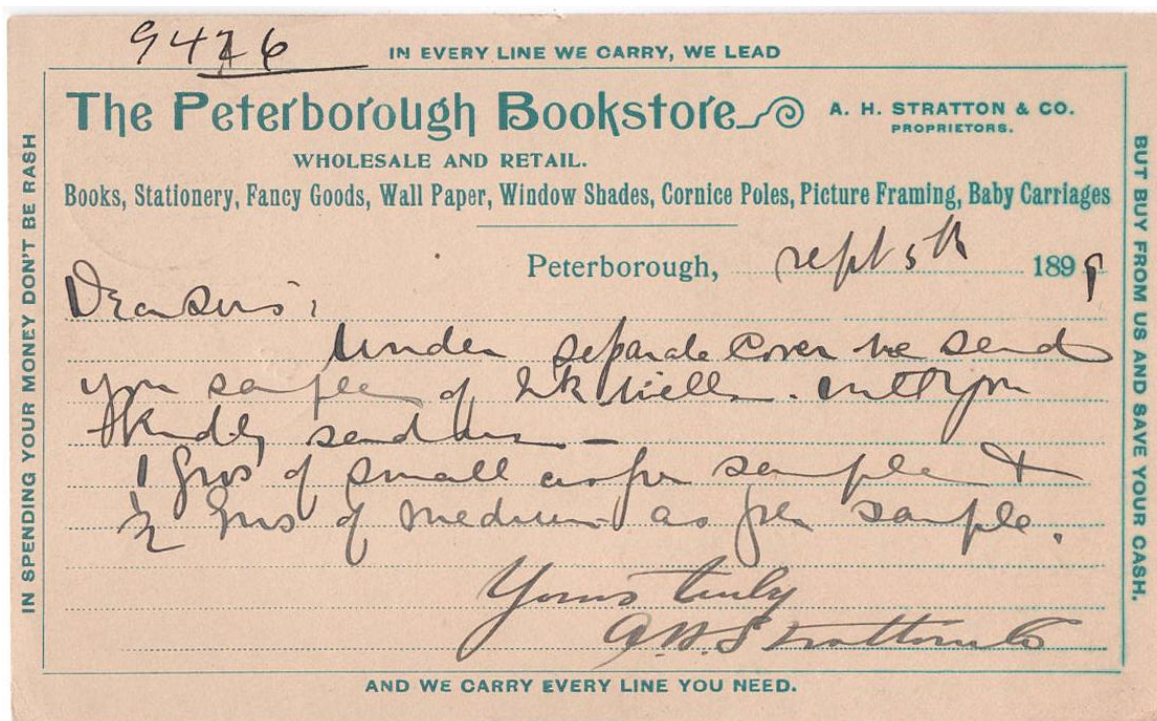 9426
IN EVERY LINE WE CARRY, WE LEAD
The Peterborough Bookstore
A. H. STRATTON & CO.
PROPRIETORS.
WHOLESALE AND RETAIL.
Books, Stationery, Fancy Goods, Wall Paper, Window Shades, Cornice Poles, Picture Framing, Baby Carriages
Peterborough, Sept 5th 1899
Dear Sirs,
Under separate cover we send
you sample of Ink Wells. will you
Kindly send us —
1 gros of small as per sample &
1/2 gros of medium as per sample.
Yours truly
A.H. Stratton & Co
AND WE CARRY EVERY LINE YOU NEED.
IN SPENDING YOUR MONEY DON'T BE RASH
BUT BUY FROM US AND SAVE YOUR CASH.